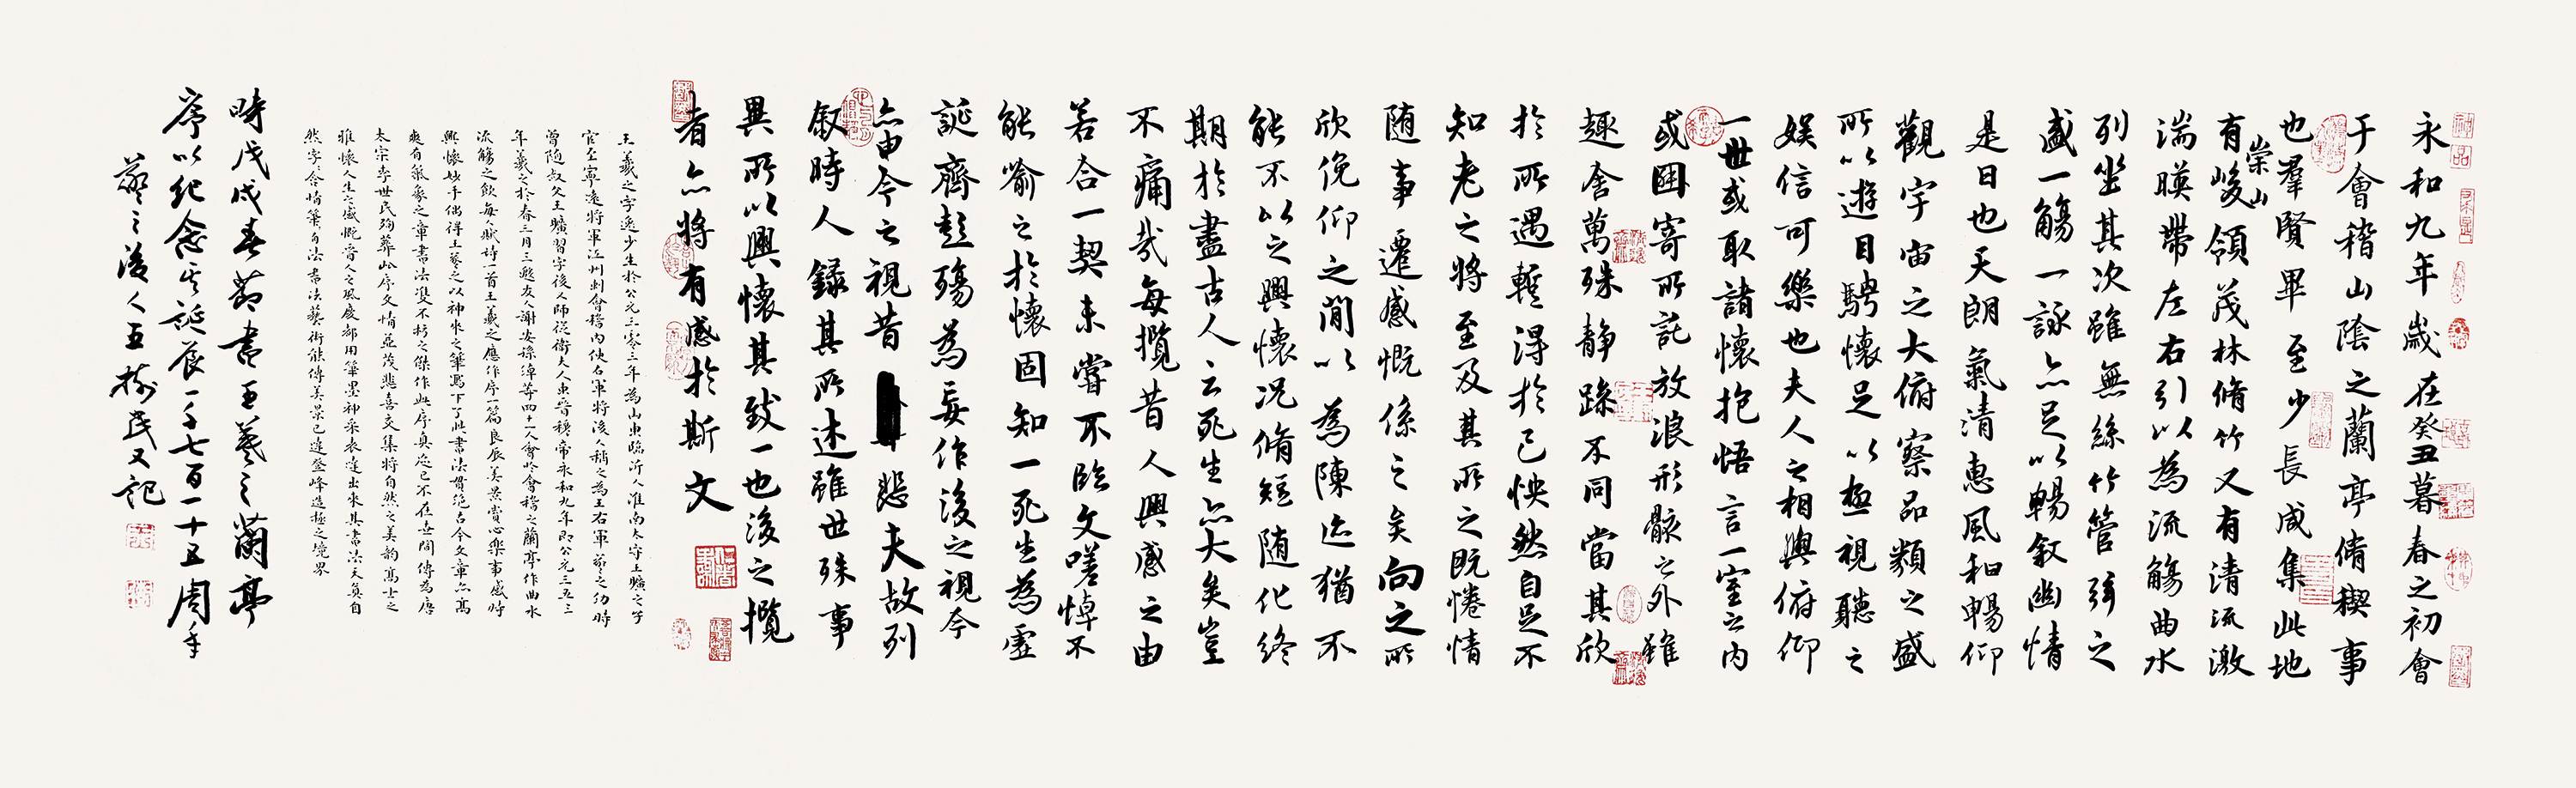 永和九年歲在癸丑暮春之初會
于會稽山陰之蘭亭脩稧事
也羣賢畢至少長咸集此地
有崇山峻領茂林脩竹又有清流激
湍暎帶左右引以為流觴曲水
列坐其次雖無絲竹管弦之
盛一觴一詠亦足以暢叙幽情
是日也天朗氣清惠風和暢仰
觀宇宙之大俯察品類之盛
所以遊目騁懷足以極視聽之
娛信可樂也夫人之相與俯仰
一世或取諸懷抱悟言一室之內
或因寄所託放浪形骸之外雖
趣舍萬殊静躁不同當其欣
於所遇暫得於己怏然自足不
知老之將至及其所之既惓情
随事遷感慨係之矣向之所
欣俛仰之間以為陳迹猶不
能不以之興懷況脩短随化終
期於盡古人云死生亦大矣豈
不痛哉每攬昔人興感之由
若合一契未嘗不臨文嗟悼不
能喻之於懷固知一死生為虛
誕齊彭殤為妄作後之視今
亦由今之視昔悲夫故列
叙時人錄其所述雖世殊事
異所以興懷其致一也後之攬
者亦將有感於斯文
王羲之字逸少生於公元三零三年為山東臨沂人淮南太守王曠之子
官至寧遠將軍江州刺會稽內使右軍將後人稱之為王右軍羲之幼時
曾随叔父王曠習字後又師從衛夫人東晉穆帝永和九年即公元三五三
年羲之於春三月三邀友人謝安孫綽等四十一人會於會稽之蘭亭作曲水
流觴之飲每人賦詩一首王羲之應作序一篇良辰美景賞心樂事感時
興懷妙手偶得王羲之以神來之筆寫下了此書法冠絕古今文章亦高
爽有氣象之章書法雙不朽之傑作此序真迹已不在世間傳為唐
太宗李世民殉葬此序文情並茂悲喜交集將自然之美韵高士之
雅懷人生之感慨晉人之風度都用筆墨神采表達出來其書法天真自
然字含情筆自法書法藝術能傳美景已達登峰造極之境界
時戊戌春節書王羲之蘭亭
序以紀念其誕辰一千七百一十五周年
羲之後人王樹茂又記
神品